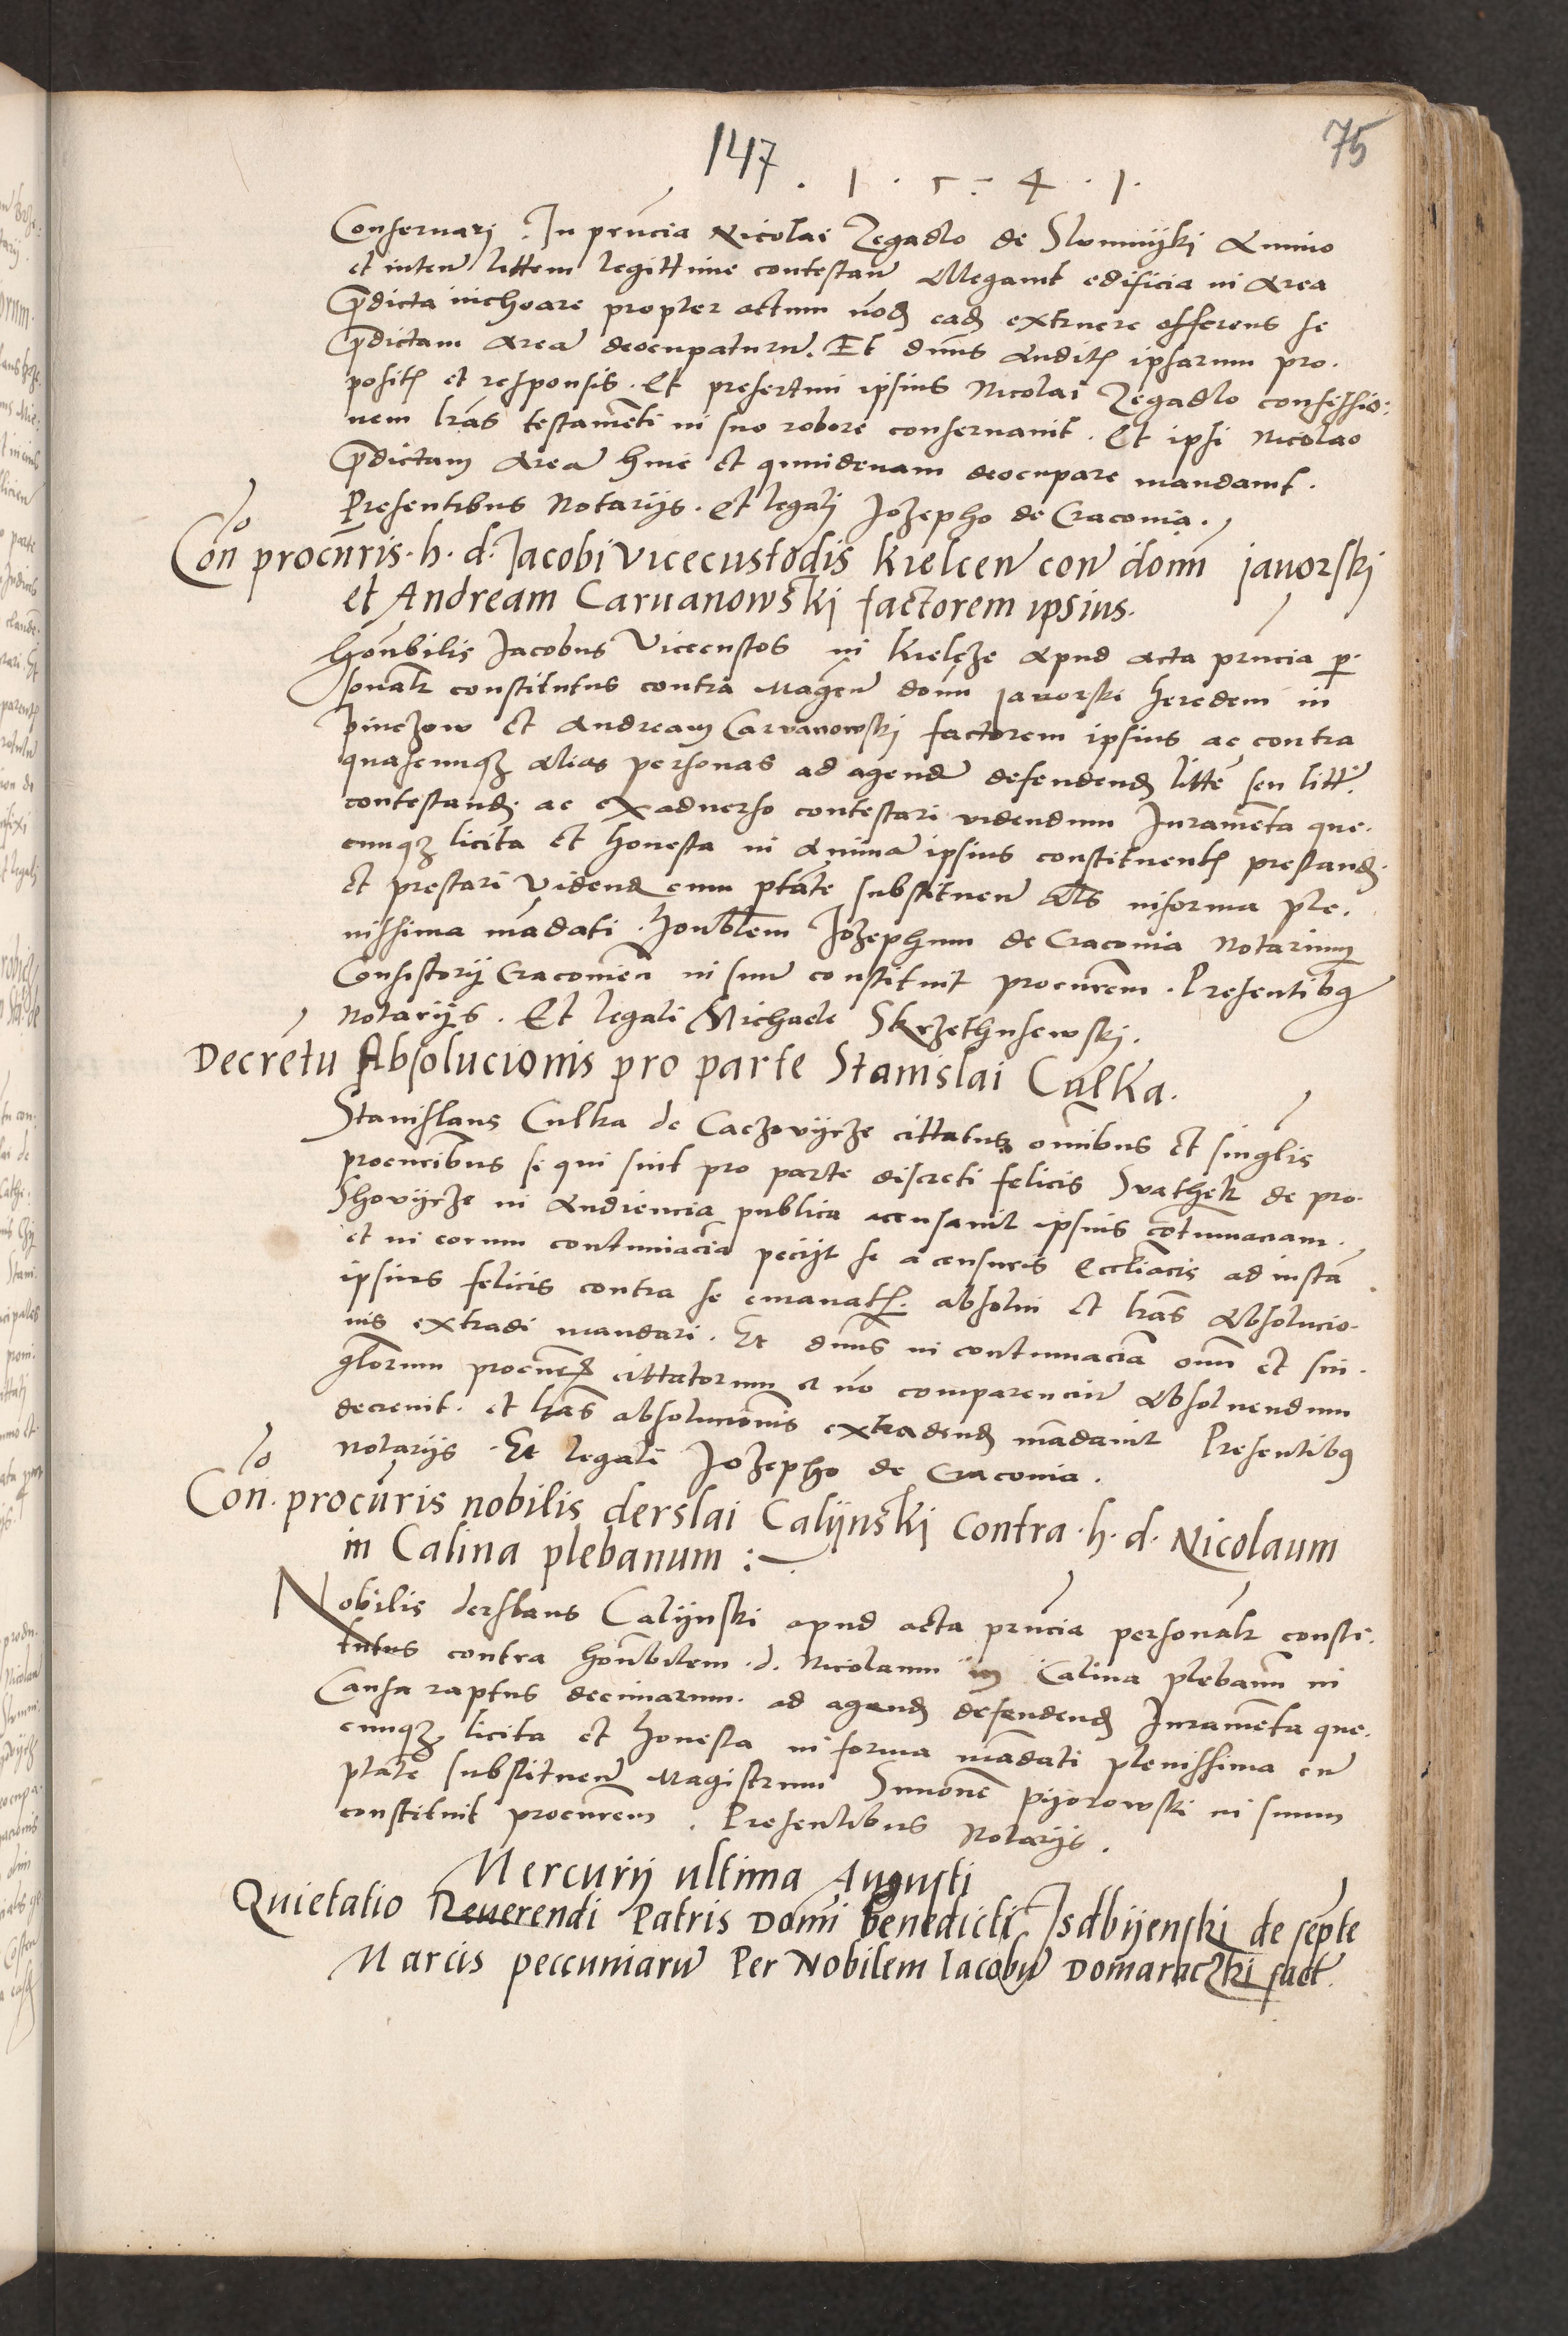 147
75
. 1 . 5 . 4 . 1 .
Conseruari . In prn̄cia Nicolai Zegadlo de Slomnijki Animo
et inten̄ littem legittime contestan̄ Allegauit edificia in Area
p̄dicta inchoare propter actum eadē extruere offerens se
p̄dictam Areā deocupaturū. Et dn̄us Auditis ipsarum pro-
positis et responsis. Et presertim ipsius Nicolai Zegadlo confessio-
nem lr̄as testamēti in suo robore conseruauit. Et ipsi Nicolao
p̄dictam Areā hinc et quindenam deocupare mandauit.
Presentibus Notarijs. Et legali Jozepho de Cracouia.
Con̄ procūris. h. d. Jacobi vicecustodis Kielcen̄ con̄ don̄m jauorskj
et Andream Caruanowskj factorem ipsius.
Honn̄bilis Jacobus Vicecustos in Kielcze Apud Acta prn̄cia p̱-
sonalr̄ constitutus contra Magn̄ don̄m jauorski heredem in
pinczow et Andream Caruanowskj factorem ipsius ac contra
quascunqz Alias personas ad agendū defendendū littē seu littē
contestandū ac exaduerso contestari videndum Juramēta que-
cunqz licita et honesta in Animā ipsius constituentis prestandū
et prestari Videndū cum ptāte substituen̄ Als in forma ple-
nissima mādati . Honn̄blem Jozephum de Cracouia Notarium
Consistorij Cracouien̄ in suū constituit procūrem . Presentibus
Notarijs . Et legali Michaele Skrzethusewskj.
Decretū Absolucionis pro parte Stanislai Culka.
Stanislaus Culka de Caczovijcze cittatus omībus et singlis
procuribus si qui sint pro parte discreti felicis Svathek de pro-
shovijcze in Audiencia publica Acusauit ipsius cōtumaciam.
et in eorum contumaciā pecijt se a censuris Eccl̄iacis ad instā
ipsius felicis contra se emanatis absolui et lr̄as Absolucio-
nis extradi mandari . Et dn̄us in contumaciā oīm et sin-
glorum procūrum cittatorum et nō comparenciū Absoluendum
decreuit . et lr̄as absolucionis extradendū mādauit Presentibus
Notarijs . Et legali Jozepho de Cracouia .
Con̄. procūris nobilis derslai Calijnskj contra . h . d . Nicolaum
in Calina plebanum :
Nobilis derslaus Calijnski apud acta prn̄cia personalr̄ consti-
tutus contra honn̄bilem . d . Nicolaum in Calina plebanū in
Causa raptus decimarum . ad agendū defendendū Juramēta que-
cunqz licita et honesta in forma mādati plenissima cū
ptāte substituen̄ Magistrum Simonē pijorowski in suum
constituit procūrem . Presentibus Notarijs .
Mercurij ultima Augusti
Quietatio Reuerendi Patris Domī benedicti Jsdbijenskj de septē
Marcis peccuniarū Per Nobilem Iacobū Domaraczki fact.